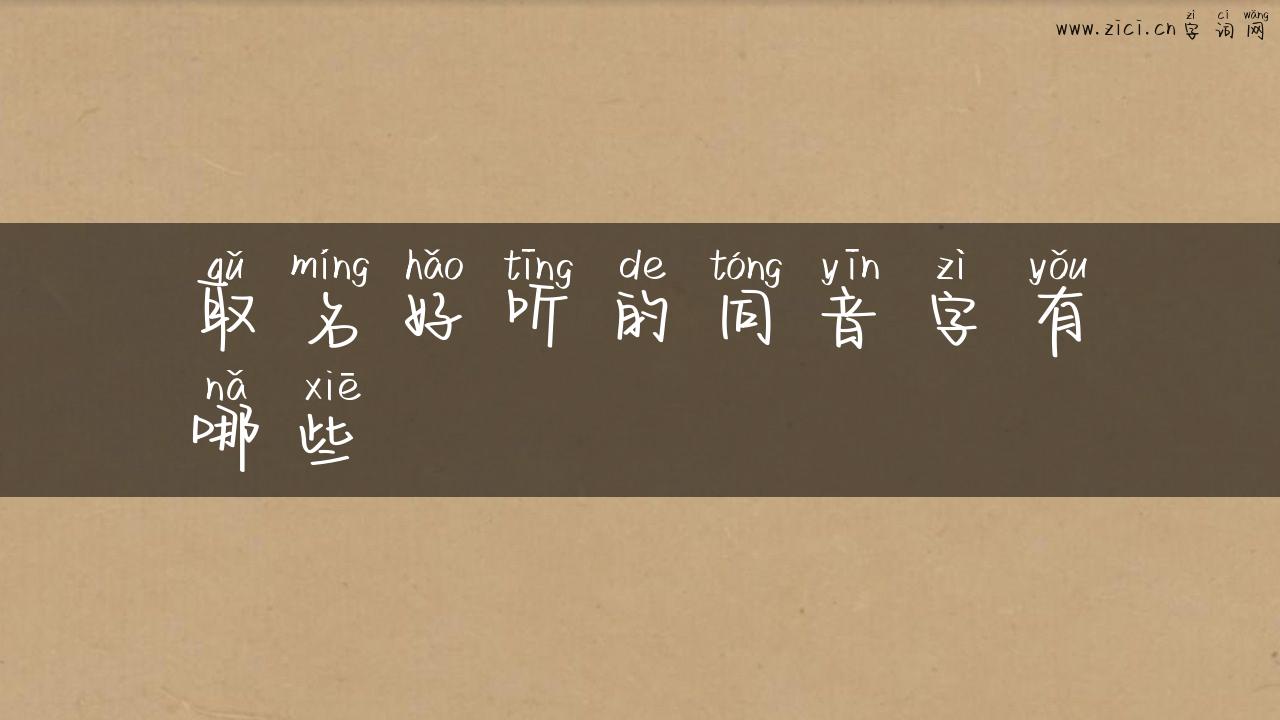 zì cí wǎng
www.zici.cn 字 词 网
qǔ míng hǎo tīng de tóng yīn zì yǒu
取 名 好 听 的 同 音 字 有
nǎ xiē
哪 些